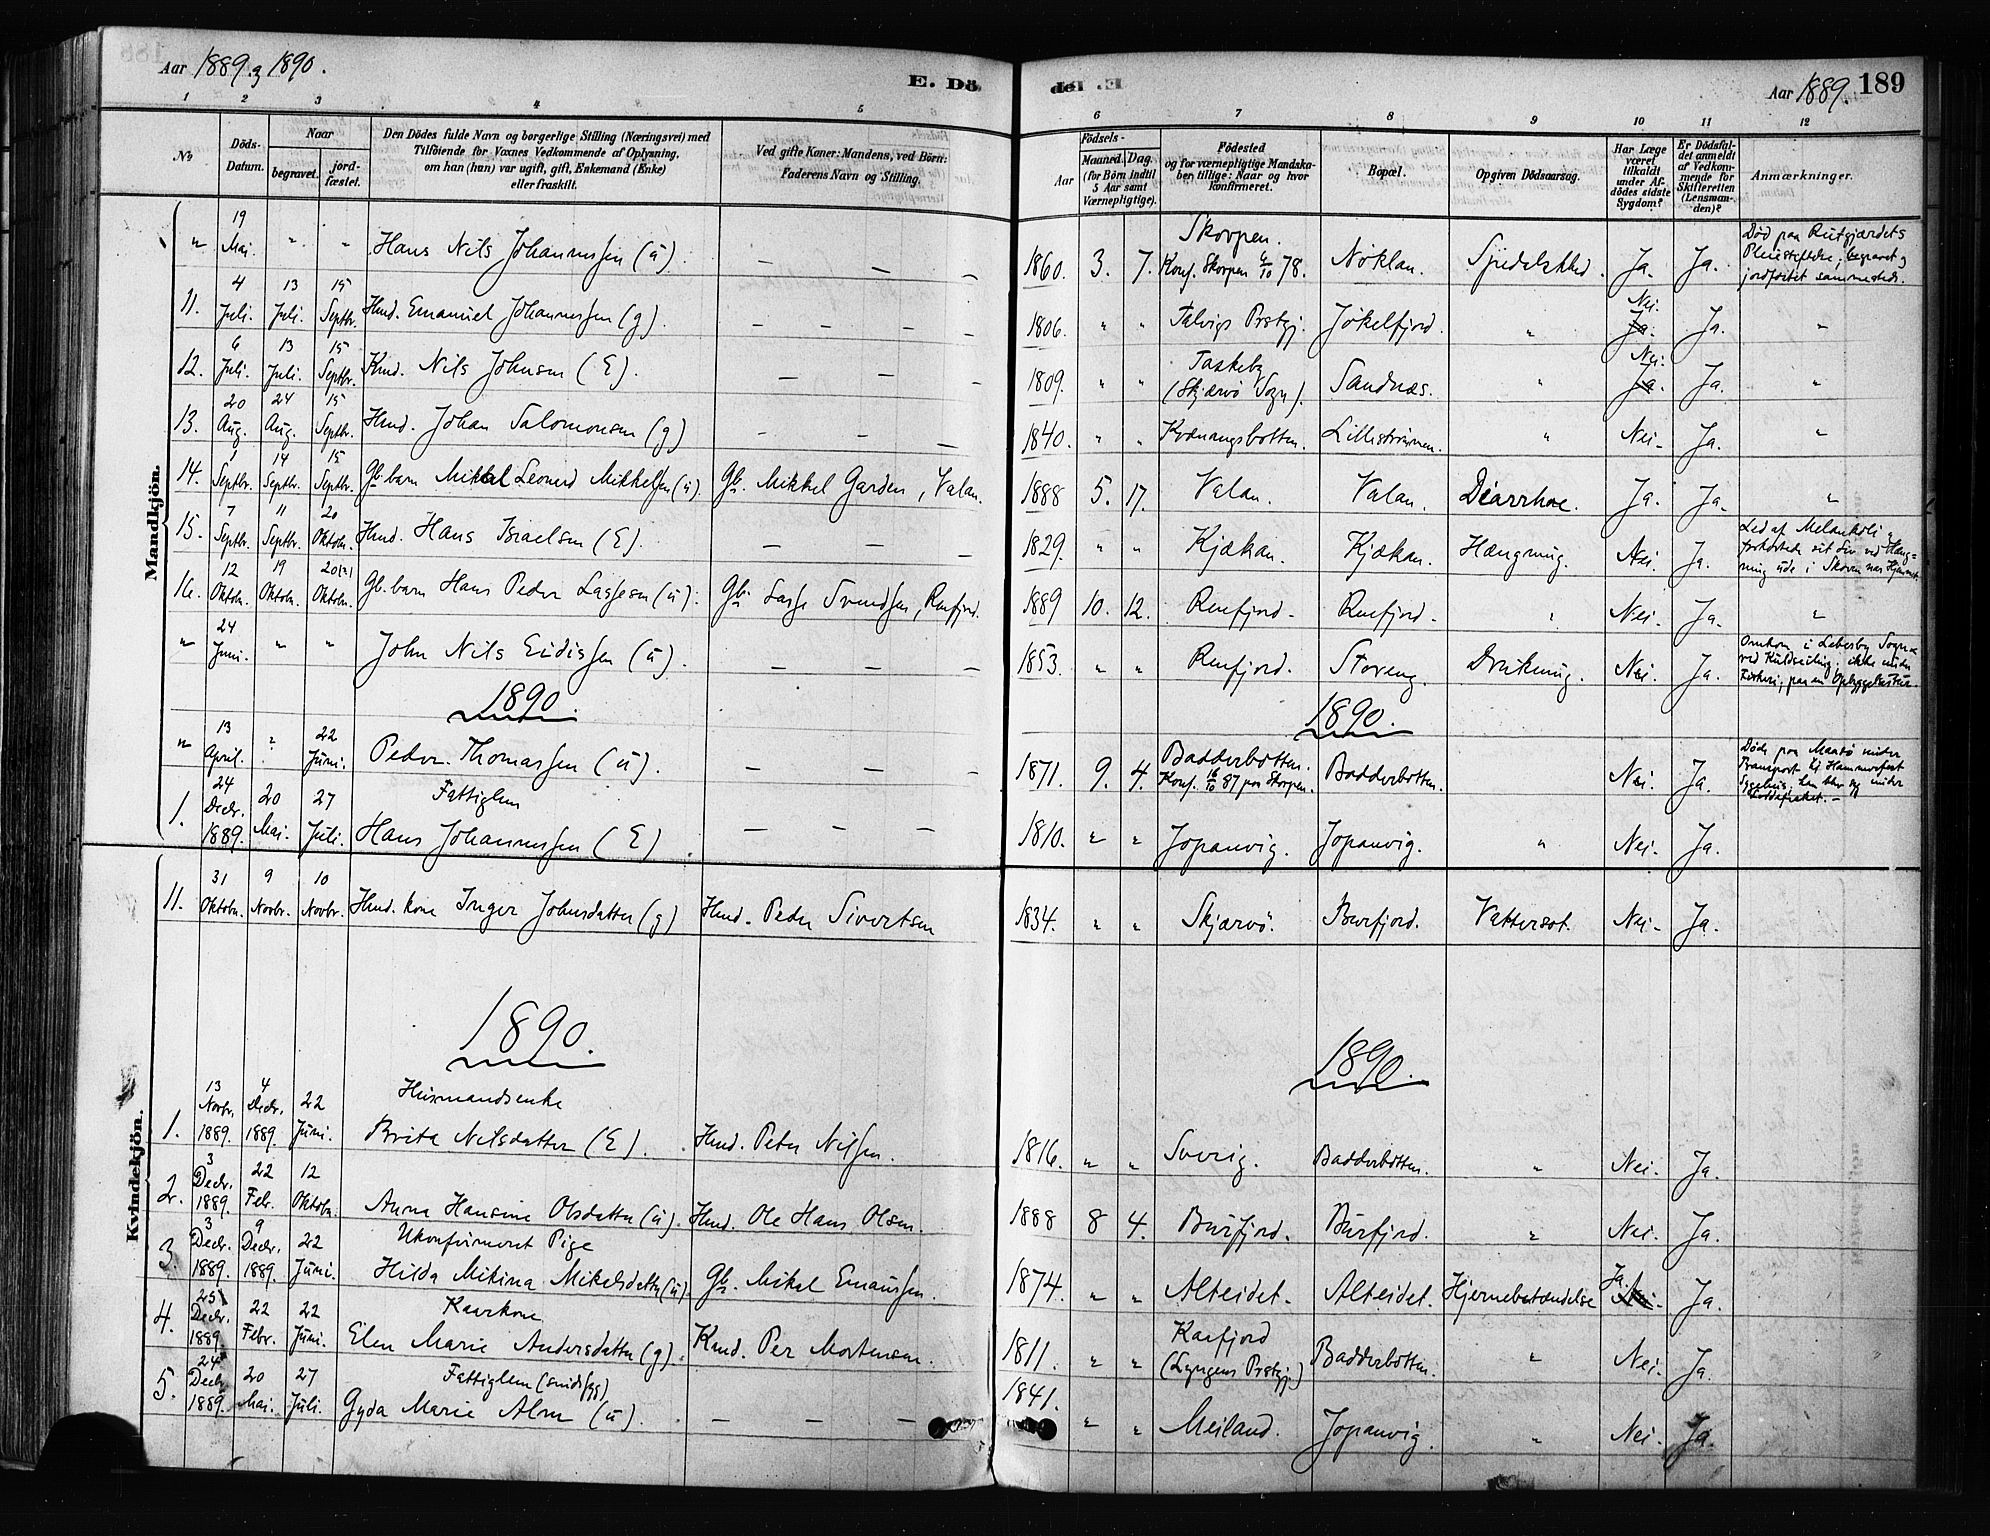 Aar 1889 og 1890.
E. Dö
de1
Aar 1889.
189
1 2 3 4 5
6 7 8 9 10 11 12
No
Döds-
Datum.
Naar
begravet.
jord-
fæstet.
Den Dödes fulde Navn og borgerlige Stilling (Næringsvei) med
Tilföiende for Voxnes Vedkommende af Oplysning,
om han (hun) var ugift, gift, Enkemand (Enke)
eller fraskilt.
Ved gifte Koner: Mandens, ved Börn:
Faderens Navn og Stilling.
Födsels-
Aar
Maaned.
Dag.
(for Börn indtil
5 Aar samt
Værnepligtige).
Födested
og for værnepligtige Mandska-
ber tillige: Naar og hvor
konfirmeret.
Bopæl.
Opgiven Dödsaarsag.
Har Læge
været
tilkaldt
under Af-
dödes sidste
Sygdom?
Er Dödsfal-
det anmeldt
af Vedkom-
mende for
Skifteretten
(Lensman-
den)?
Anmærkninger.
Mandkjön.
" 19 Mai. " " Hans Nils Johannessen (u) — — — 1860. 3. 7. Skorpen. Konf. Skorpen 6/10 78. Nöklan. Spedalskhed. Ja. Ja. Død paa Reitgjærdets Pleiestiftelse, begravet og jordfæstet sammesteds.
11. 4 Juli. 13 Juli. 15 Septbr. Hmd. Emanuel Johannessen (g) — — — — 1806. " " Talvigs Prstgj. Jökelfjord. " Nei. Ja. Ja. "
12. 6 Juli. 13 Juli. 15 Septbr. Kmd. Nils Johnsen (E). — — — 1809. " " Taskeby (Skjærvö Sogn). Sandnæs. " Nei. Ja. Ja. "
13. 20 Aug. 24 Aug. 15 Septbr. Hmd. Johan Salomonsen (g) — — — 1840. " " Kvænangsbotten. Lillestrømmen. " Nei. Ja. "
14. 1 Septbr. 14 Septbr. 15 Septbr. Gb. barn Mikkal Leonerd Mikkelsen (u) Gb. Mikkel Garden, Valan. 1888 5. 17. Valan. Valan. Diarrhoe. Ja. Ja. "
15. 7 Septbr. 11 Septbr. 20 Oktobr. Hmd. Hans Israelsen (E). — — — 1829. " " Kjækan. Kjækan. Hængning. Nei. Ja. Led af Melankoli og forkortede sit Liv ved Hæng= ning ude i Skoven nær Hjemmet
16. 12 Oktobr. 19 Oktobr. 20 Oktobr. Gb. barn Hans Peder Lassesen (u). Gb. Lasse Svendsen, Renfjord. 1889 10. 12. Renfjord. Renfjord. " Nei. Ja. "
" 24 Juni. " " John Nils Eidissen (u). — — — 1853. " " Renfjord. Storeng. Drukning. Nei. Ja. Omkom i Lebesby Sogn ved Kuldseiling, ikke under Fiskeri, paa en
1890. 1890.
" 13 April. " 22 Juni. Peder Thomassen (u). — — — 1871. 9. 4. Badderbotten. Konf. 16/10 87 paa Skorpen. Badderbotten. Nei. Ja. Døde paa Maasö under Transport til Hammerfest Sygehus,
1. 24 Decbr. 1889. 20 Mai. 27 Juli. Fattiglem Hans Johannessen (E) — — — 1810. " " Jopanvig. Jopanvig. " Nei. Ja.
Kvindekjön.
11. 31 Oktobr. 9 Novbr. 10 Novbr. Hmd. kone Inger Johnsdatter (g) Hmd. Peder Sivertsen 1834. " " Skjærvö. Burfjord. Vattersot. Nei. Ja.
1890. 1890.
1. 13 Novbr. 1889. 4 Decbr. 1889. 22 Juni. Husmandsenke Brita Nilsdatter (E). Hmd. Peter Nilsen. 1816. " " Sverig. Badderbotten. " Nei. Ja.
2. 3 Decbr. 1889. 22 Febr. 12 Oktobr. Anna Hansine Olsdatter (u). Hmd. Ole Hans Olsen. 1888 8 4. Burfjord. Burfjord. " Nei. Ja.
3. 3 Decbr. 1889. 9 Decbr. 1889. 22 Juni. Ukonfirmeret Pige Hilda Mikina Mikelsdatter (u). Gb. Mikel Emausen. 1874. " " Alteidet. Alteidet. Hjernebetændelse Ja. Nei. Ja.
4. 25 Decbr. 1889. 22 Febr. 22 Juni. Kaarkone Elen Marie Andersdatter (g). Kmd. Per Mortensen. 1811. " " Kaafjord (Lyngens Prstgj.) Badderbotten. " Nei. Ja.
5. 24 Decbr. 1889. 20 Mai. 27 Juli. Fattiglem (sindssyg) Gyda Marie Alm (u). — — — 1841. " " Meiland. Jopanvig. " Nei. Ja.